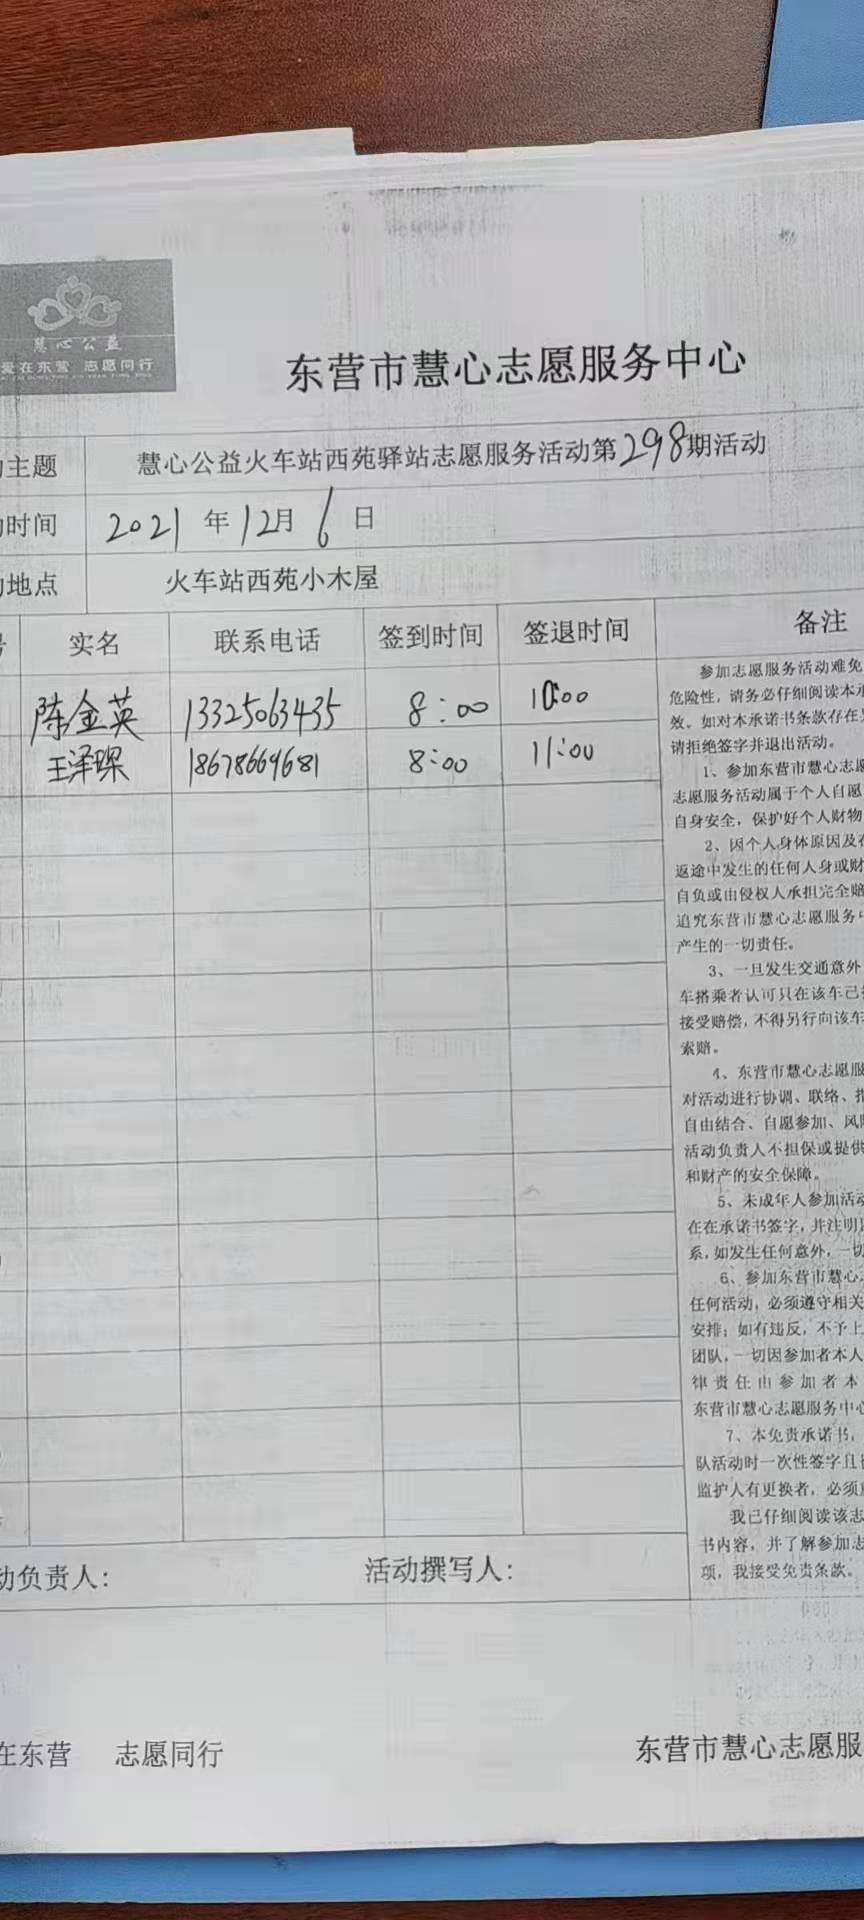 慧心公益
爱在东营 志愿同行
东营市慧心志愿服务中心
主题 慧心公益火车站西苑驿站志愿服务活动第298期活动
时间 2021年12月6日
地点 火车站西苑小木屋
实名 联系电话 签到时间 签退时间 备注
陈金英 13325063435 8:00 10:00
王泽琛 18678669681 8:00 11:00
参加志愿服务活动难免
危险性，请务必仔细阅读本承
效。如对本承诺书条款存在
请拒绝签字并退出活动。
1、参加东营市慧心志愿
志愿服务活动属于个人自愿
自身安全，保护好个人财物
2、因个人身体原因及在
返途中发生的任何人身或财
自负或由侵权人承担完全赔
追究东营市慧心志愿服务中
产生的一切责任。
3、一旦发生交通意外
车搭乘者认可只在该车已
接受赔偿，不得另行向该车
索赔。
4、东营市慧心志愿服
对活动进行协调、联络、指
自由结合、自愿参加、风险
活动负责人不担保或提供
和财产的安全保障。
5、未成年人参加活动
在在承诺书签字，并注明
系，如发生任何意外，一切
6、参加东营市慧心
任何活动，必须遵守相关
安排；如有违反，不予上
团队，一切因参加者本人
律责任由参加者本
东营市慧心志愿服务中心
7、本免责承诺书，
队活动时一次性签字且
监护人有更换者，必须
我已仔细阅读该志
书内容，并了解参加志
项，我接受免责条款。
动负责人： 活动撰写人：
在东营 志愿同行 东营市慧心志愿服